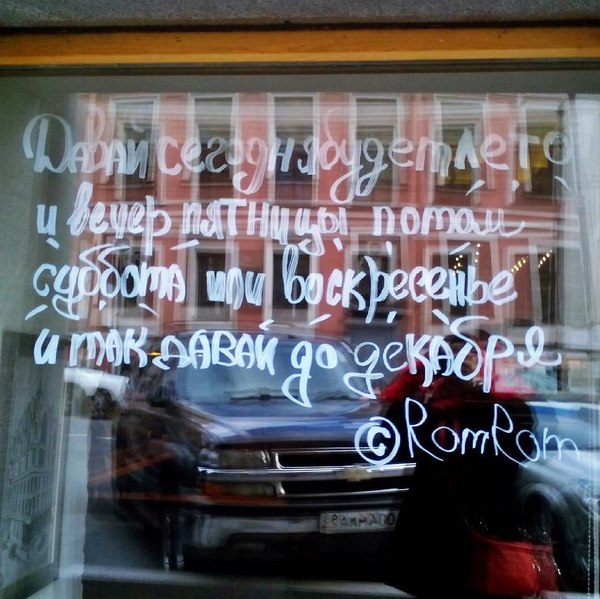 Давай сегодня будет лето
и вечер пятницы потом
суббота или воскресенье
и так давай до декабря
© RomRom